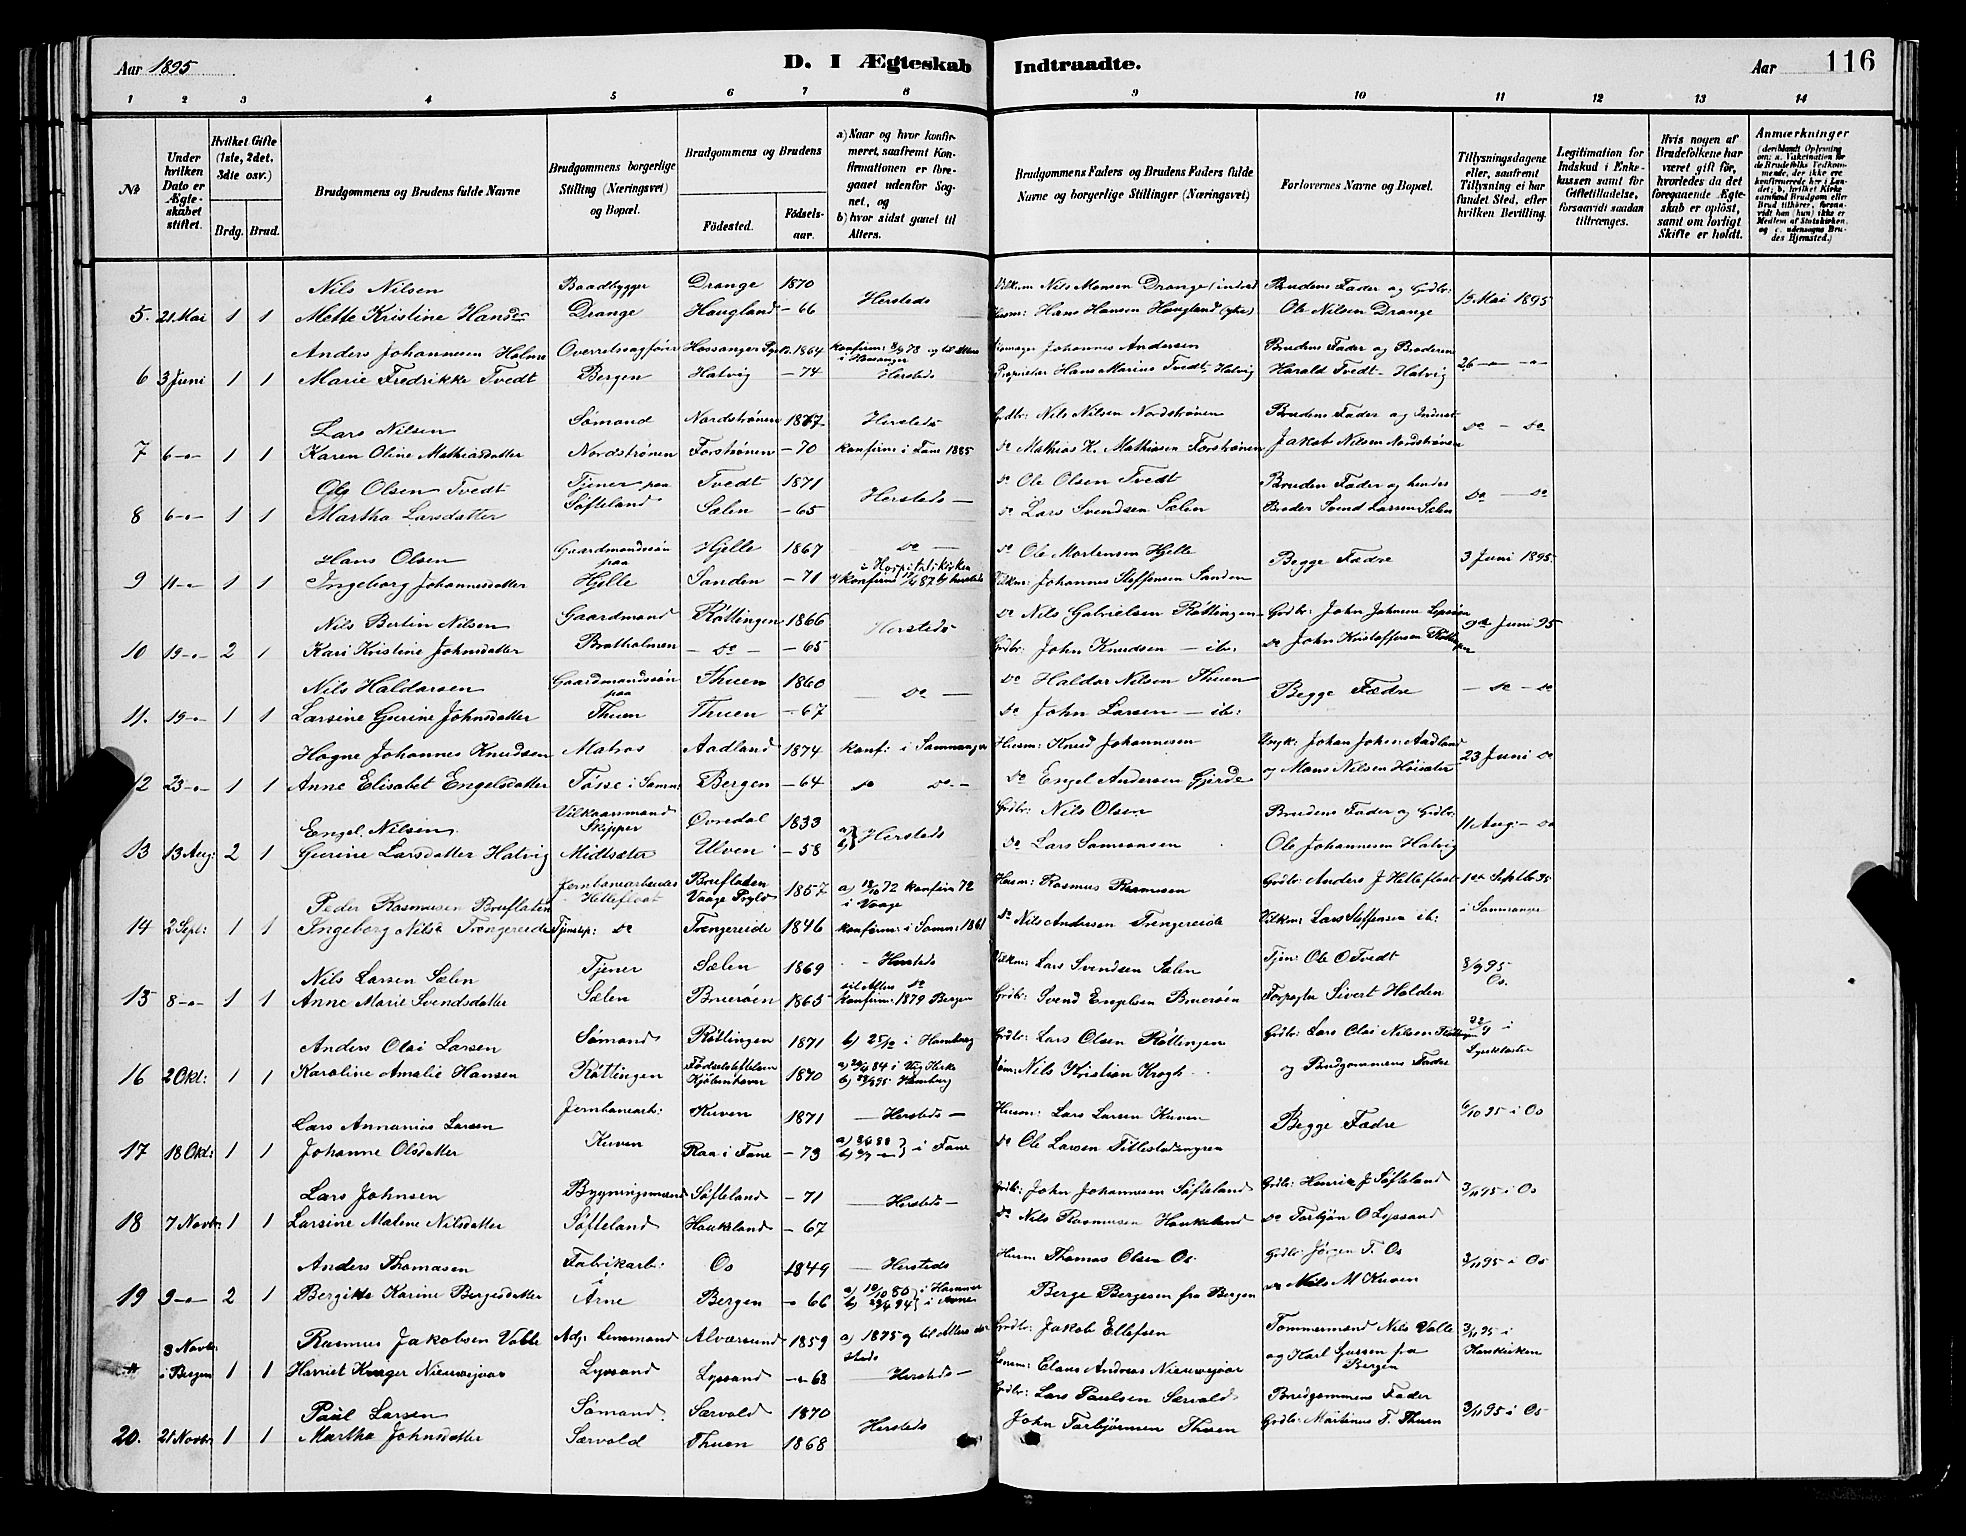 Aar 1895
D. I Ægteskab Indtraadte.
Aar
116
1 2 3 4 5 6 7 8 9 10 11 12 13 14
No
Under hvilken Dato er Ægteskabet stiftet.
Hvilket Gifte (1ste, 2det, 3die osv.)
Brdg. Brud.
Brudgommens og Brudens fulde Navne
Brudgommens borgerlige Stilling (Næringsvei) og Bopæl.
Brudgommens og Brudens
Fødested.
Fødselsaar.
a) Naar og hvor konfirmeret, saafremt Konfirmationen er foregaaet udenfor Sognet, og
b) hvor sidst gaaet til Alters.
Brudgommens Faders og Brudens Faders fulde Navne og borgerlige Stillinger (Næringsvei)
Forlovernes Navne og Bopæl.
Tillysningsdagene eller, saafremt Tillysning ei har fundet Sted, efter hvilken Bevilling.
Legitimation for Indskud i Enkekassen samt for Giftetilladelse, forsaavidt saadan tiltrænges.
Hvis nogen af Brudefolkene har været gift før, hvorledes da det foregaaende Ægteskab er opløst, samt om lovligt Skifte er holdt.
Anmærkninger
Nils Nilsen Baadbygger Drange 1870 Hersteds Nils Monsen Drange Brudens Fader og Grdbr: 19 Mai 1895
5. 21 Mai 1 1 Mette Kristine Hansdr Drange Haugland - 66 Husm: Hans Hansen Haugland (ytre) Ole Nilsen Drange
Anders Johannesen Holme Overretssagfører Hossanger 1864 konfirm: 78 og til Alters i Hosanger Johannes Andersen Brudens Fader og Broderen 26 -"- -"-
6 3 Juni 1 1 Marie Fredrikke Tvedt Bergen Hatvig - 74 Hersteds Proprietær Hans Marius Tvedt, Hatvig Harald Tvedt - Hatvig
Lars Nilsen Sømand Nordstrønen 1867 Hersteds Grdbr: Nils Nilsen Nordstrønen Brudens Fader og do - do
7 6 -"- 1 1 Karen Oline Mathiasdatter Nordstrønen Forstrønen - 70 konfirm: i Fane 1885 do Mathias K. Mathiasen Forstrønen Jakob Nilsen Nordstrønen
Ole Olsen Tvedt Tjener paa Tvedt 1871 Hersteds do Ole Olsen Tvedt Bruden Fader og hendes do - do
8 6 -"- 1 1 Martha Larsdatter Søfteland Sælen - 65 do Lars Svendsen Sælen Broder Svend Larsen Sælen
Hans Olsen Gaardmandssøn paa Hjelle 1867 do do Ole Mortensen Hjelle Begge Fædre 3 Juni 1895
9 11 -"- 1 1 Ingeborg Johannesdatter Hjelle Sanden - 71 i Hospitalskirken konfirm: 87 b) hersteds Vilkm: Johannes Steffensen Sanden
Nils Bertin Nilsen Gaardmand Røttingen 1866 Hersteds do Nils Gabrielsen Røttingen Grdbr: John Johnsen Lepsøen 9de Juni 95
10 19 -"- 2 1 Kari Kristine Johnsdatter Bratholmen - do - - 65 Grdbr: John Knudsen - ib: do John Kristoffersen Røttingen
Nils Haldorsen Gaardmandssøn paa Thuen 1860 - do - do Haldor Nilsen Thuen Begge Fædre - do - do
11. 19 -"- 1 1 Larsine Gurine Johnsdatter Thuen Thuen - 67 do John Larsen - ib:
Hogne Johannes Knudsen Matros Aadland 1874 konf: i Sammanger Husm: Knud Johannesen Johan Johns: Aadland 23 Juni do
12 23 -"- 1 1 Anne Elisabet Engelsdatter Tøsse i Samn: Bergen - 64 do do - do Engel Andersen Gjerde og Mons Nilsen Høisæter
Engel Nilsen Vilkaarsmand Skipper Øvredal 1833 a) b) Hersteds Grdbr: Nils Olsen Brudens Fader og Grdbr: 11 Aug: - do
13 13 Aug: 2 1 Gurine Larsdatter Hatvig Midtsæter Ulven - 58 do Lars Samsonsen Ole Johannesen Hatvig
Peder Rasmusen Bruflaten Jernbanearbeider Hetleflaat Bruflaten Vaage Prgld 1857 a) 13/10 72 konfirm 72 i Vaage Husm: Rasmus Rasmusen Grdbr: Anders J Hetleflaat 1ste Septbr 95
14 2 Sept: 1 1 Ingeborg Nilsdr Trengereide Tjenstep: do Trengereide 1846 konfirm: i Samn: 1861 do Nils Andersen Trengereide Vilkm: Lars Steffensen ib: i Sammanger
Nils Larsen Sælen Tjener Sælen 1869 - Hersteds Vilkm: Lars Svendsen Sælen Tjen: Ole O Tvedt 8/9 95 Os.
15 8 -"- 1 1 Anne Marie Svendsdatter Sælen Bruerøen 1865 til Alters do konfirm: 1879 Bergen Grdbr: Svend Engelsen Bruerøen Forpagter Sivert Holden
Anders Olai Larsen Sømand Røttingen 1871 b) 25/12 i Hamburg Grdbr: Lars Olsen Røttingen Grdbr: Lars Olai Nilsen Røttingen 22/9 i Lysekloster
16 2 Okt: 1 1 Karoline Amalie Hansen Røttingen Fødselsstiftelsen Kjøbenhavn 1870 84 i Vig Kirke b) 95 Hamburg Nils Kristian Krogh og Brudgommens Fader
Lars Annanias Larsen Jernbanearb: Kuven 1871 - Hersteds - Husm: Lars Larsen Kuven Begge Fædre 6/10 95 i Os
17 18 Okt: 1 1 Johanne Olsdatter Kuven Raa i Fane - 73 a) b) i Fane do Ole Larsen Titlestadmyren
Lars Johnsen Bygningsmand Søfteland - 71 - Herstede - Grdbr: John Johannesen Søfteland Grdbr: Henrik J Søfteland 3/11 95 i Os
18 7 Novbr: 1 1 Larsine Malene Nilsdatter Søfteland Haukeland - 67 do Nils Rasmusen Haukeland do Torbjøn O Lyssand
Anders Thomasen Fabrikarb: i Os 1849 - Herstede Husm Thomas Olsen Os Grdbr: Jørgen T. Os 3/11 95 i Os
19 9 -"- 2 1 Bergitte Karine Bergesdatter Arne Bergen -"- 66 a) 10/10 80 i Hammer b) 94 i Arne Berge Bergesen fra Bergen do Nils M Kuven
9 Novbr: i Bergen 1 1 Rasmus Jakobsen Valle Adj: Lensmand Alværsund 1859 a) 1875 og til Alters der steds Grdbr: Jakob Ellefsen Tømmermand Nils Valle 3/11 95 i Hauskirken
Harriet Krüger Nieuwejaar Lyssand Lyssand -"- 68 - Herstede - Lensm: Claus Andreas Nieuwejaar og Karl Garssen fra Bergen
Paul Larsen Sømand Sævold 1870 Herstede Grdbr: Lars Paulsen Sævold Brudgommens Fader 3/11 95 i Os
20. 21 Novbr 1 1 Martha Johnsdatter Særvold Thuen 1868 John Torbjørnsen Thuen Grdbr: Martinus T. Thuen